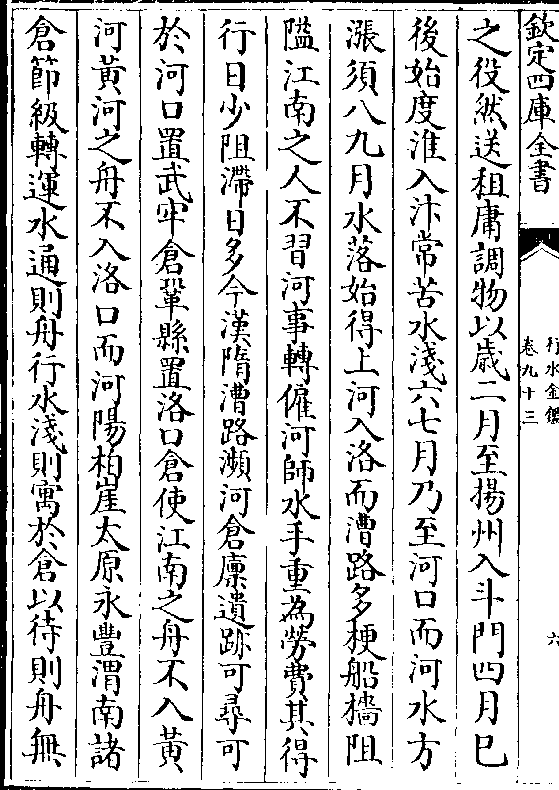 欽定四庫全書
行水金鑑
卷九十三
六
之役然送租庸調物以歳二月至揚州入斗門四月已
後始度淮入汴常苦水淺六七月乃至河口而河水方
漲須八九月水落始得上河入洛而漕路多梗船檣阻
隘江南之人不習河事轉僱河師水手重為勞費其得
行日少阻滯日多今漢隋漕路瀕河倉廪遺跡可尋可
於河口置武牢倉鞏縣置洛口倉使江南之舟不入黄
河黄河之舟不入洛口而河陽柏崖太原永豐渭南諸
倉節級轉運水通則舟行水淺則寓於倉以待則舟無